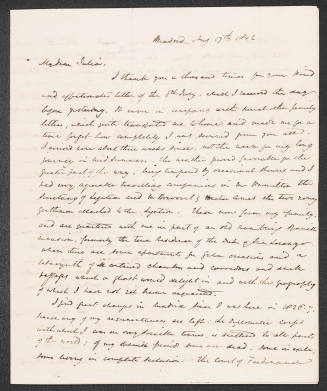 Madrid, Aug 17th 1842
My dear Julia,
I thank you a thousand times for your kind
and affectionate letter of the 8th July, which I received the day
before yesterday. It came in company with several other family
letters, which quite transported me to home and made me for a
time forget how completely I was severed from you all.
I arrived here about three weeks since, not the worse for my long
journey in mid summer. The weather proved favorable for the
greater part of the way; being tempered by occasional showers and I
had very agreeable travelling companions in Mr Hamilton the
Secretary of Legation and Mr Brevoort & Hector Ames the two young
gentlemen attached to the legation. These now form my family,
and are quartered with me in part of an old rambling Spanish
mansion, formerly the town residence of the Duke of
where there are some apartments for galas occasions and a
labyrinth of chambers and corridors and back
passages which a ghost would delight in and with the geography
of which I have not yet become acquainted.
I find great changes in Madrid since I was here in 1826-7;
scarce any of my acquaintances are left; the diplomatic corps
with which I was on very sociable terms is scattered to all parts
of the world; of my Spanish friends some are dead; some in exile,
some living in complete seclusion. The court of Ferdinand